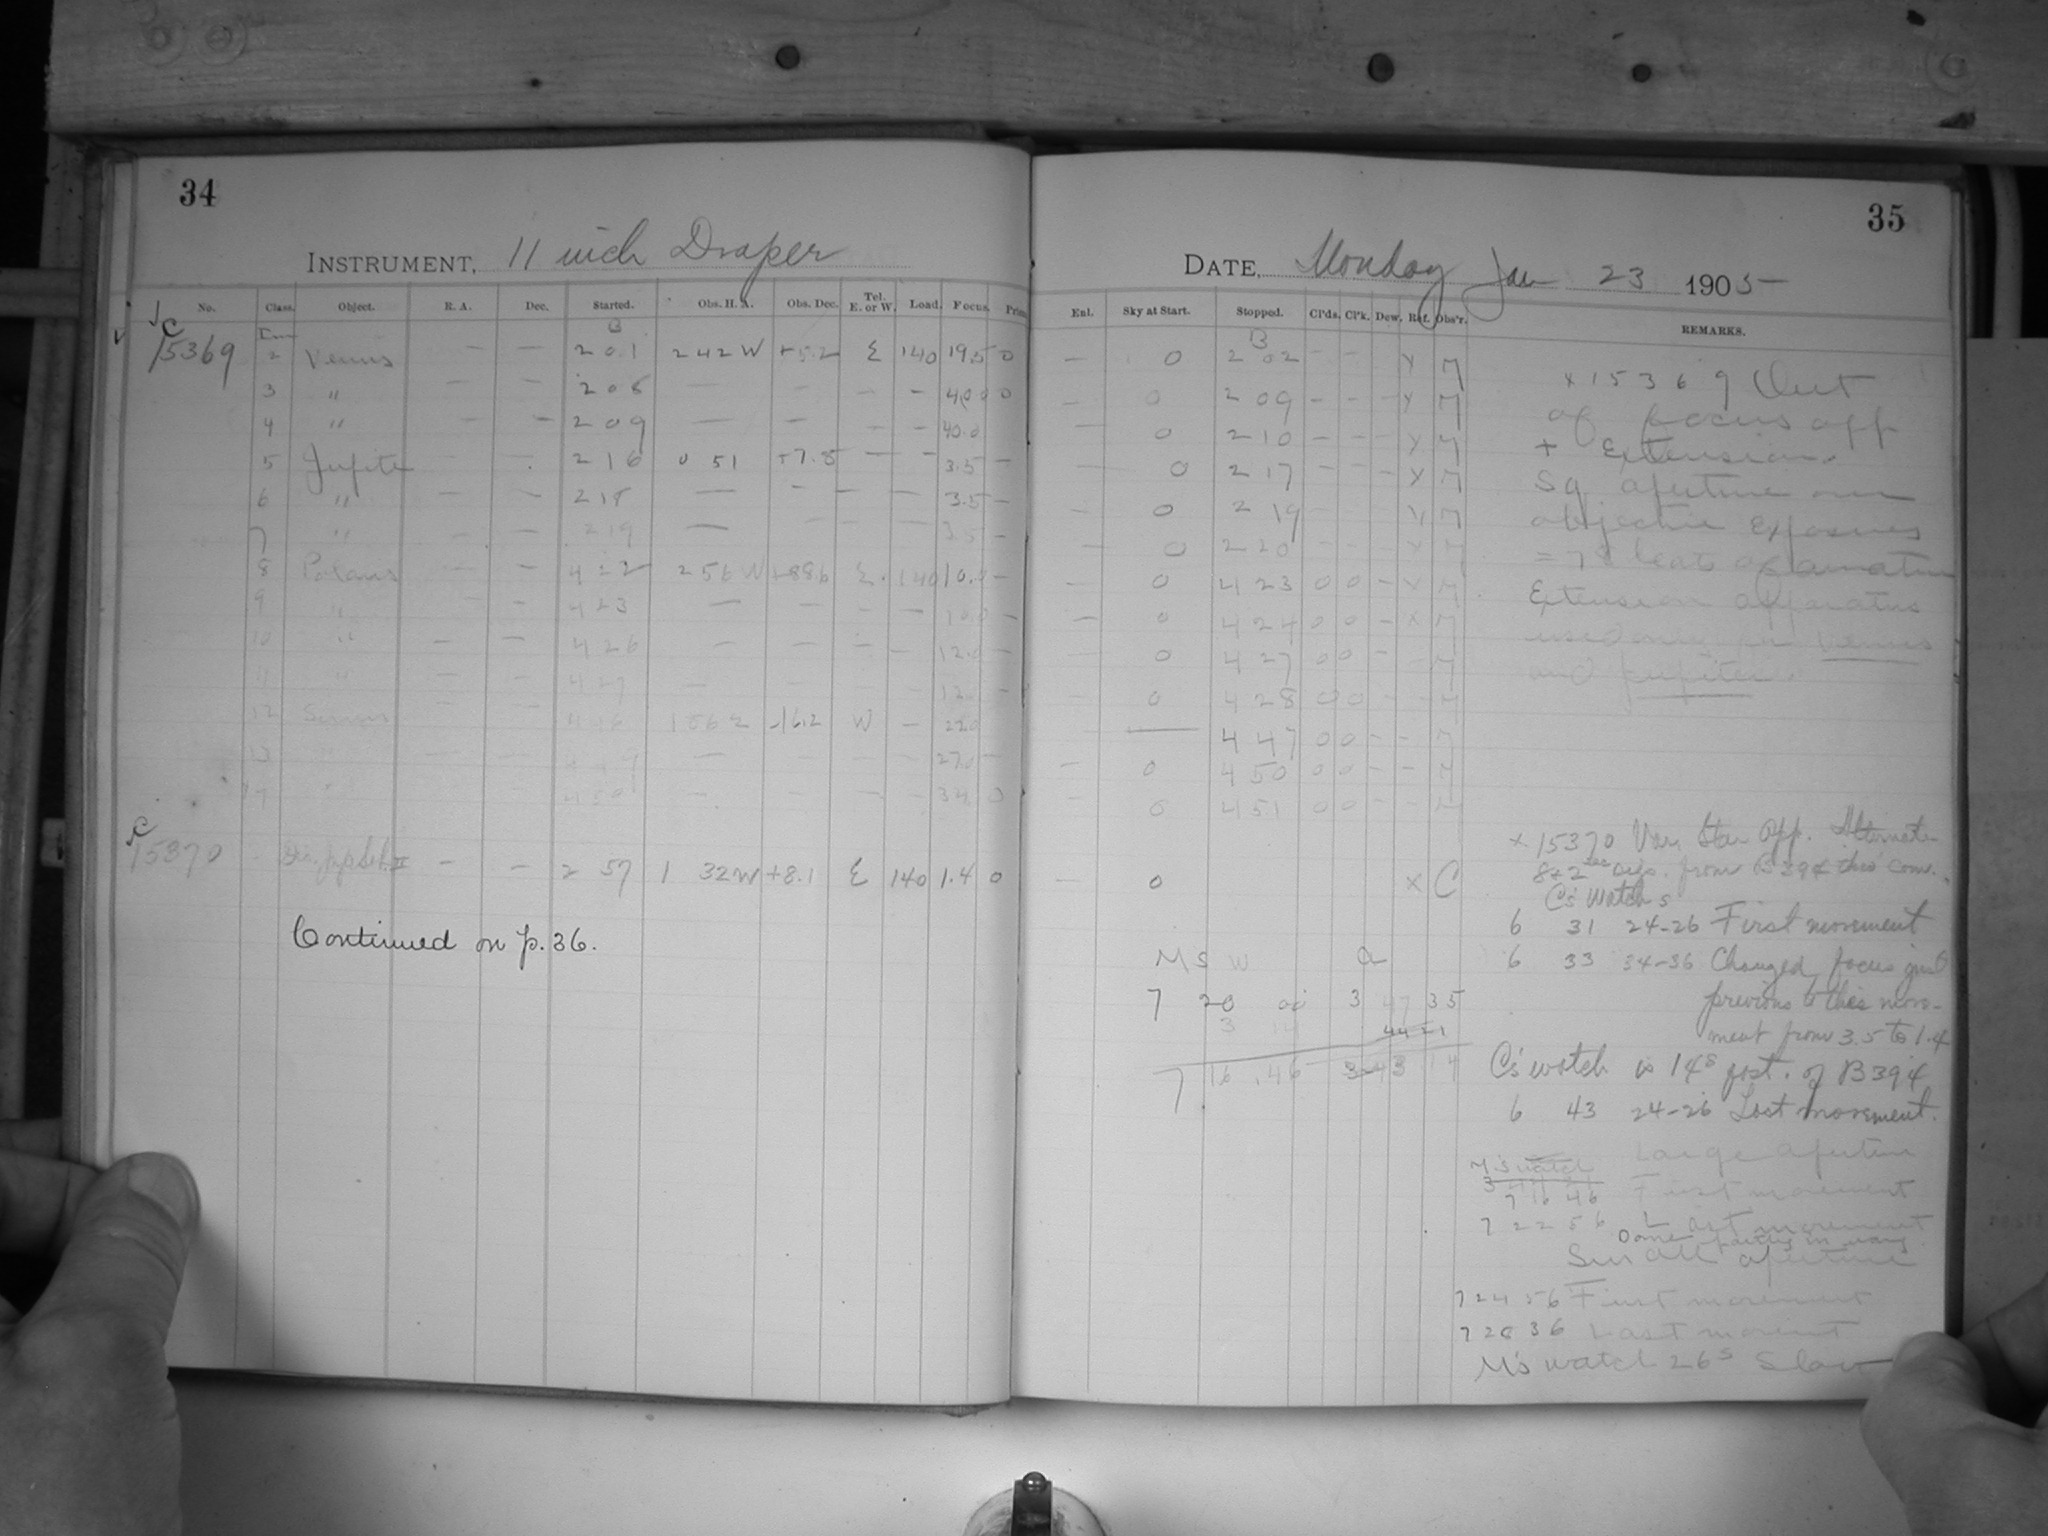 34
INSTRUMENT, 11 inch Draper
No. Class. Object. R. A. Dec. Started. Obs. H. A. Obs. Dec. Tel. E. or W. Load. Focus.
C 15369 2 Venus — — 2 01 2 42 W +5.2 E 140 19.5 0
3 " — — 2 08 — — — — 40.0 0
4 " — — 2 09 — — — — 40.0
5 Jupiter — — 2 16 0 51 +7.8 — — 3.5 —
6 " — — 2 18 — — — — 3.5 —
7 " — — 2 19 — — — — 3.5 —
8 Polaris — — 4 22 2 56 W +88.6 E. 140 10.0 —
9 " — — 4 23 — — — — 10.0 —
10 " — — 4 26 — — — — 12.0 —
11 " — — 4 27 — — — — 12.0 —
12 Sirius — — 4 46 1 56 E -16.2 W — 22.0
13 — — — — — — 27.0 —
4 50 — — — — 32.0 0
C 15370 Jup. Sat. II — — 2 57 1 32 W +8.1 E 140 1.4 0
Continued on p. 36.
35
DATE, Monday Jan 23 1905
Enl. Sky at Start. Stopped. Cl'ds. Cl'k. Dew. Ref. Obs'r. REMARKS.
B
— 0 2 02 — — x M
— 0 2 09 — — — x M
— 0 2 10 — — — x M
0 2 17 — — — x M
— 0 2 19 — — x M
— 0 2 20 — — — x M
— 0 4 23 0 0 — x M
— 0 4 24 0 0 — x M
0 4 27 0 0 — — M
— 0 4 28 0 0 — — M
— 4 47 0 0 — — M
— 0 4 50 0 0 — — M
— 0 4 51 0 0 — — M
— 0 x C
x 15369 Out
of focus app
+ Extension.
Sq. aperture over
objective Exposures
Extension apparatus
used only for Venus
and Jupiter.
x 15370 Var. Star App. Alternate
8 & 2 sec from B 394 this com.
C's Watch s
6 31 24-26 First movement
6 33 34-36 Changed focus just
previous to this move-
ment from 3.5 to 1.4
C's watch is 14s fast. of B 394
6 43 24-26 Last movement.
M's W a
7 20 00 3 47 35
3 14 44 21
7 16 46 3 43 14
Large aperture
M's watch
7 16 46 First movement
7 22 56 Last movement
Dome partly in way
Small aperture
7 24 56 First movement
7 28 36 Last movement
M's watch 26s Slow